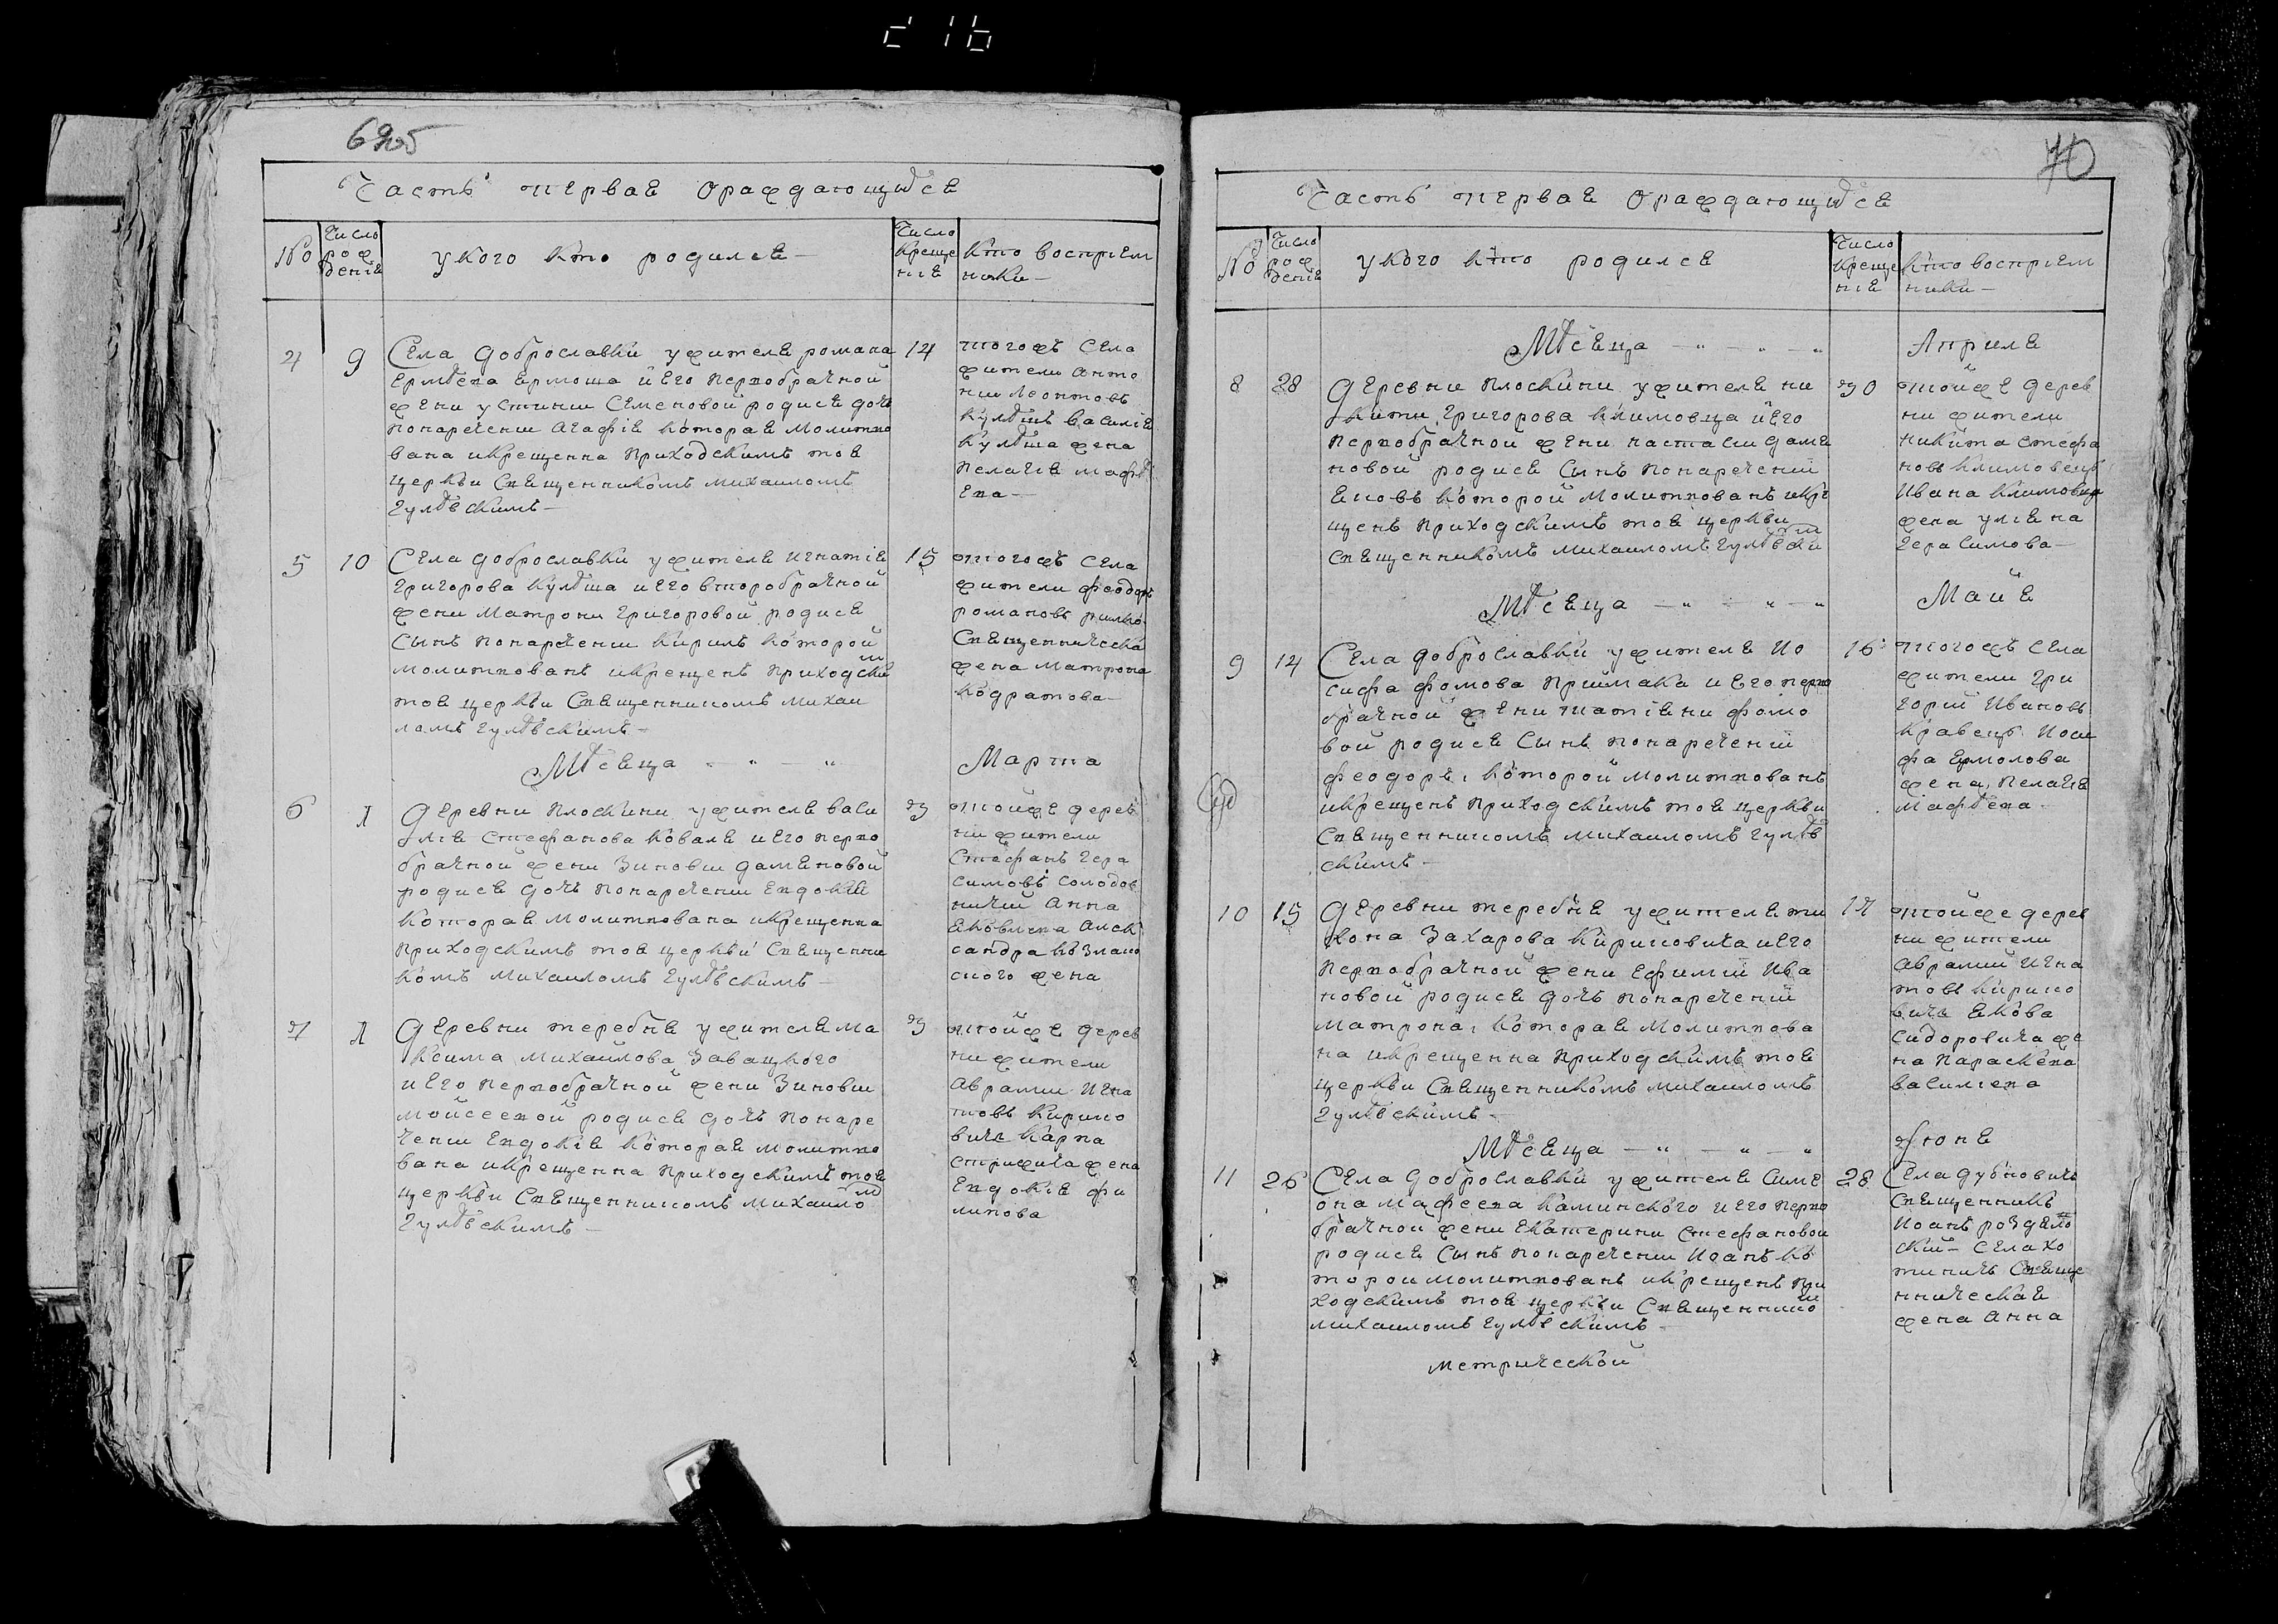 69об
Часть первая ораждающихся
№
Число рождения
у кого кто родился
Число крещения
кто восприемники
4 9 14
Села Доброславки у жителя романа
Ермѣева Ермоша и его первобрачной
жены устинии Семеновой родися дочь
понаречении Агафія которая молитво
вана и крещенна приходскимъ тоя
церкви Священникомъ михаиломъ
Гулѣвскимъ
тогожъ села
жители анто
ний Леонтовъ
Кулѣшъ василія
Кулѣша жена
Пелагія мафѣ
ева
5 10 15
Села Доброславки у жителя игнатія
григорова Кулѣша и его второбрачной
жени матрони григоровой родися
Сынъ понаречении Кирилъ которой
молитвованъ и крещенъ приходским
тоя церкви Священникомъ михаи
ломъ Гулѣвскимъ
тогожъ села
жители феодоръ
романовъ
Священническа
жена матрона
Кодратова
Мѣсяца Марта
6 1 3
Деревни Плоскини у жителя васи
лія стефанова коваля и его перво
брачной жени Зиновии дамяновой
родися дочь понаречении Евдокия
которая молитвована и крещенна
приходскимъ тоя церкви Священни
комъ михаиломъ Гулѣвскимъ
тойже дерев
ни жители
Стефанъ гера
симовъ солодов
ничий анна
яковлева алек
сандра
ского жена
7 1 3
Деревни теребня у жителя ма
ксима михайлова Завацкого
и его первобрачной жени Зиновии
мойсеевой родися дочь понаре
чении Евдокія которая молитво
вана и крещенна приходскимъ тоя
церкви Священникомъ михаилом
Гулѣвскимъ
тойже дерев
ни жители
аврамии игна
товъ Кирило
вичъ карпа
стрижича жена
Евдокія фи
липова
70
Часть первая ораждающихся
№
Число рождения
у кого кто родился
Число крещения
кто восприемники
Мѣсяца Априля
8 28 30
Деревни плоскини у жителя ни
кити григорова климовца и его
первобрачной жени настасии дамя
новой родися Сынъ понаречений
Яковъ которой молитвованъ и кре
щенъ приходскимъ тоя церкви
Священникомъ михаиломъ Гулѣвским
тойже дерев
ни жители
никита стефа
новъ климовецъ
Ивана климовца
жена уліяна
герасимова
Мѣсяца Майя
9 14 16
Села Доброславки у жителя Ио
сифа фомова приймака и его перво
брачной жени татіяни фомо
вой родися Сынъ понаречений
феодоръ которой молитвованъ
и крещенъ приходскимъ тоя церкви
Священникомъ михаиломъ Гулѣв
скимъ
тогожъ села
жители гри
горий Ивановъ
Кравецъ Иоси
фа Ермолова
жена Пелагія
мафѣева
10 15 17
Деревни теребня у жителя ти
хона Захарова Кириловича и его
первобрачной жени Ефимии Ива
новой родися дочь понаречений
матрона которая молитвова
на и крещенна приходскимъ тоя
церкви Священникомъ михаиломъ
Гулѣвскимъ
тойже дерев
ни жители
аврамии игна
товъ Кирило
вичъ якова
Сидоровича же
на параскева
василіева
Мѣсяца Июня
11 26 28
Села Доброславки у жителя Симе
она мафеева Каминского и его перво
брачной жени Екатерини стефановой
родися Сынъ понаречении Иоанъ ко
торой молитвованъ и крещенъ при
ходскимъ тоя церкви Священником
михаиломъ Гулѣвскимъ
Села дубновичъ
Священникъ
Иоанъ роздяло
ский Села хо
тиничъ Священ
ническая
жена анна
метрической